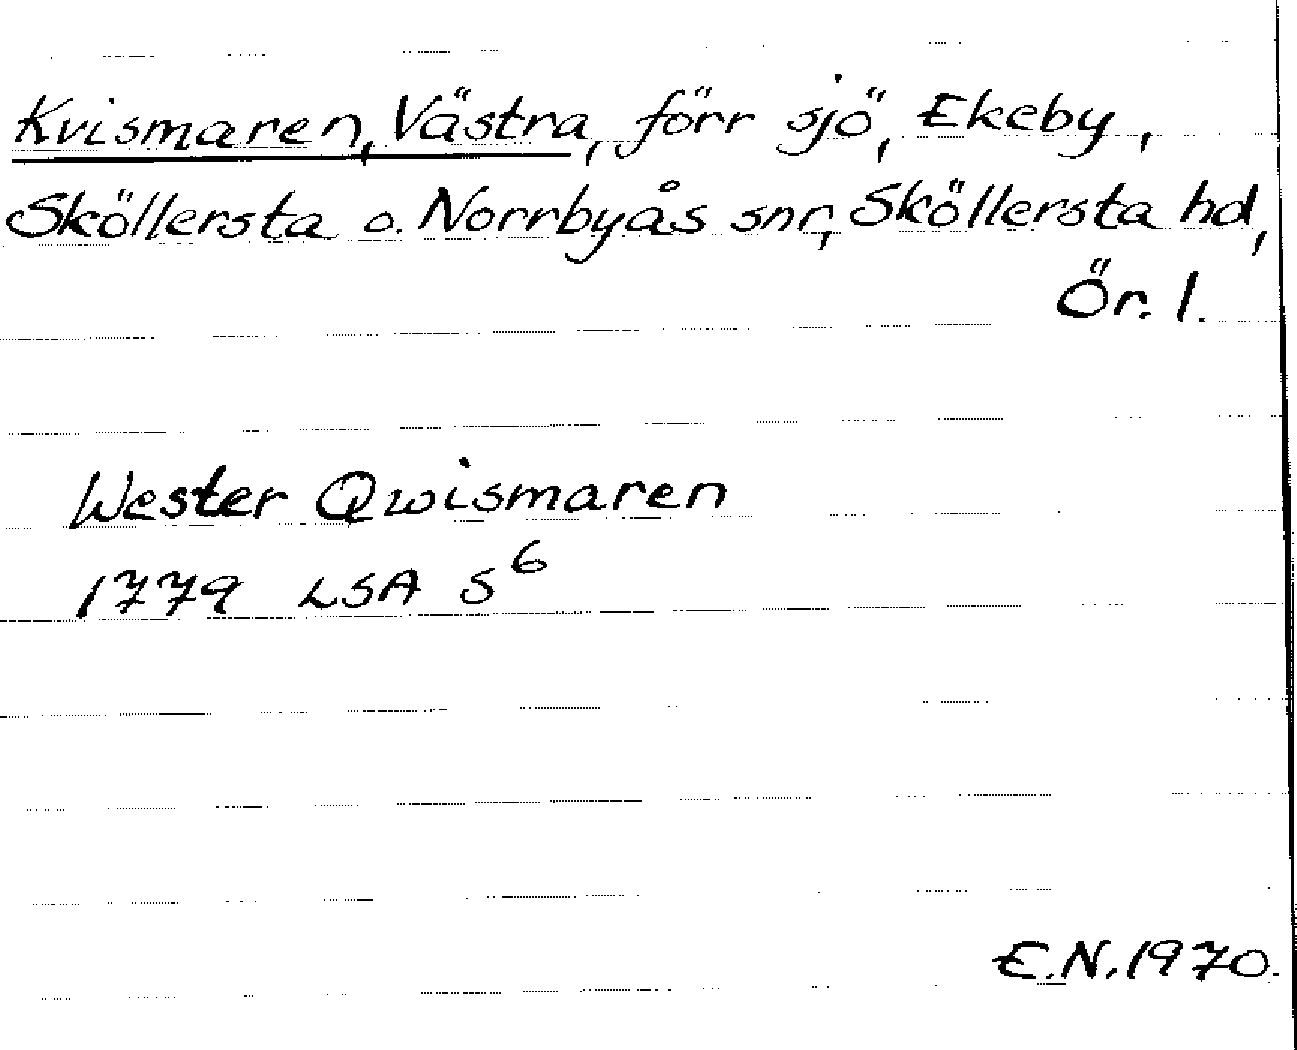 Kvismaren, Västra, förr sjö, Ekeby,
Sköllersta o. Norrbyås snr, Sköllersta hd,
Ör. l.
Wester Qwismaren
1779 LSA S⁶
E.N. 1970.